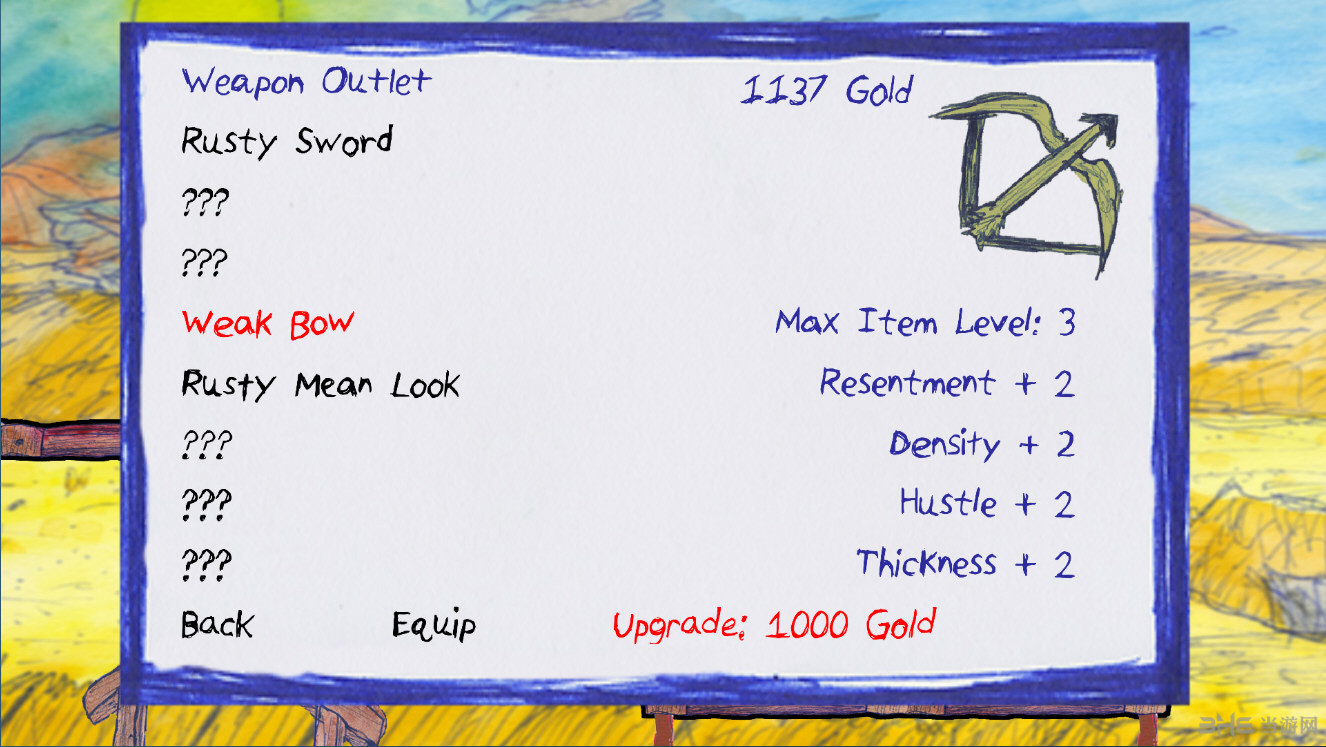 Weapon Outlet
1137 Gold
Rusty Sword
???
???
Weak Bow
Max Item Level: 3
Rusty Mean Look
Resentment + 2
???
Density + 2
???
Hustle + 2
???
Thickness + 2
Back
Equip
Upgrade: 1000 Gold
3HG 当游网